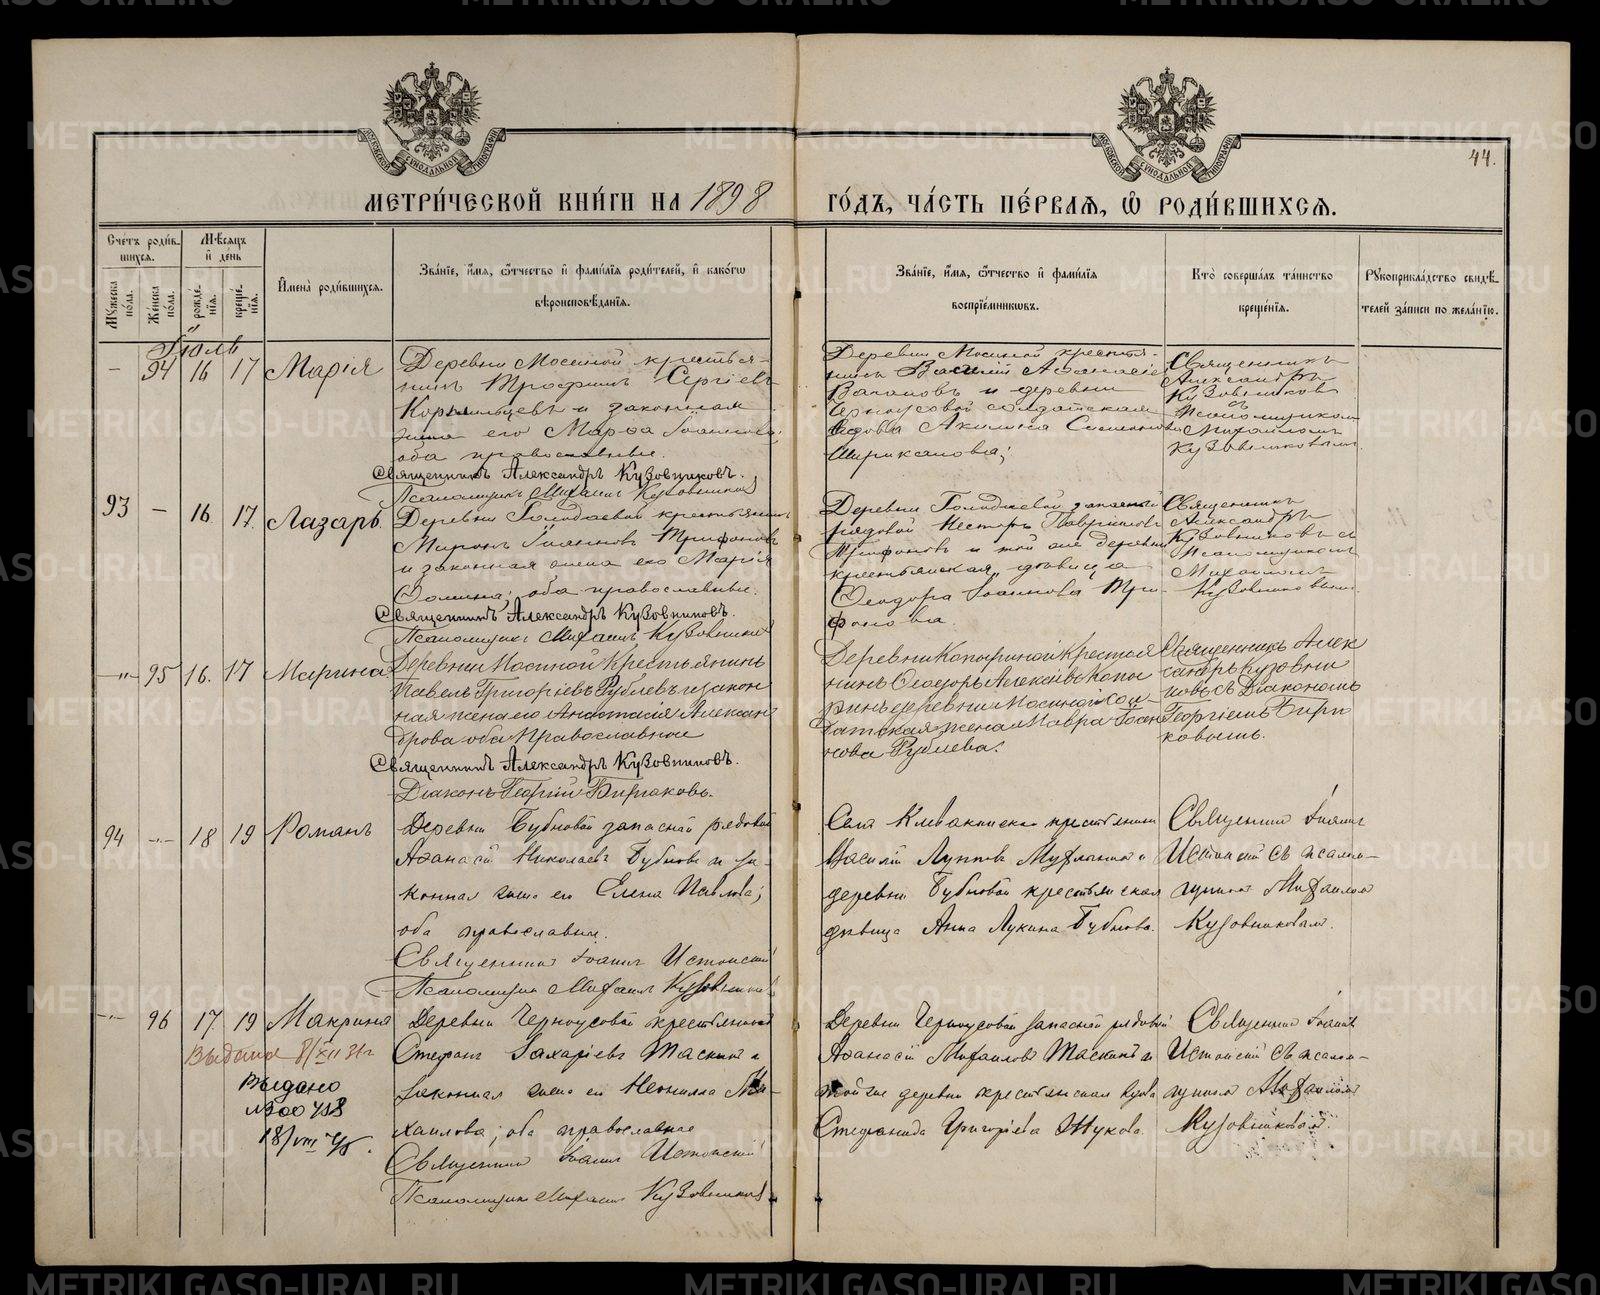 44.
МОСКОВСКОЙ СѴНОДАЛЬНОЙ ТИПОГРАФІИ
МОСКОВСКОЙ СѴНОДАЛЬНОЙ ТИПОГРАФІИ
МЕТРИ́ЧЕСКОЙ КНИ́ГИ НА 1898 ГО́ДЪ, ЧА́СТЬ ПЕ́РВАѦ, Ѡ҆ РОДИ́ВШИХСѦ.
Сче́тъ роди́в-
шихся.
Мѣ́сяцъ
и҆ де́нь
Мꙋ́жеска по́ла.
Же́нска по́ла.
рожде́нїя.
креще́нїя.
И҆мена̀ роди́вшихся.
Зва́нїе, и҆́мя, ѻ҆́тчество и҆ фами́лїя роди́телей, и҆ како́гѡ
вѣроисповѣ́данїя.
Зва́нїе, и҆́мя, ѻ҆́тчество и҆ фами́лїя
воспрїе́мникѡвъ.
Кто̀ соверша́лъ та́инство
креще́нїя.
Рꙋкоприкла́дство свидѣ́-
телей за́писи по жела́нїю.
Іюль
- 94 16 17 Марія
Деревни Мосиной крестья-
нинъ Трофимъ Сергіевъ
Кормильцевъ и законная
жена его Марѳа Іоаннова;
оба православные.
Священникъ Александръ Кузовниковъ.
Псаломщикъ Михаилъ Кузовниковъ
Деревни Мосиной крестья-
нинъ Василій Аѳанасіев
Вагановъ и деревни
Черноусовой солдатская
вдова Акилина Симеонова
Ширкалова;
Священникъ
Александръ
Кузовников
съ
Псаломщиком
Михаиломъ
Кузовниковымъ
93 - 16 17. Лазарь.
Деревни Голодаевой крестьянинъ
Миронъ Іоанновъ Трифоновъ
и законная жена его Марія
Ѳомина; оба православные.
Священникъ Александръ Кузовниковъ.
Псаломщикъ Михаилъ Кузовниковъ
Деревни Голодаевой запасный
рядовой Несторъ Гавриловъ
Трифоновъ и той же деревни
крестьянская дѣвица
Ѳеодора Іоаннова Три-
фонова.
Священникъ
Александръ
Кузовниковъ съ
Псаломщикомъ
Михаиломъ
Кузовниковымъ
-"- 95 16. 17 Марина
Деревни Мосиной Крестьянинъ
Павелъ Григоріевъ Рублевъ и закон
ная жена его Анастасія Алексан
дрова оба Православные
Священникъ Александръ Кузовниковъ.
Діаконъ Георгій Бирюковъ.
Деревни Копыриной Крестья
нинъ Ѳеодоръ Алексіевъ Копы
ринъ деревни Мосиной Сол-
датская жена Мавра Іоан
нова Рублева.
Священникъ Алек
сандръ Кузовни
ковъ съ Діакономъ
Георгіемъ Бирю
ковымъ.
94 -"- 18 19 Романъ
Деревни Бубновой запасной рядовой
Аѳанасій Николаевъ Бубновъ и за-
конная жена его Елена Павлова;
оба православны.
Священникъ Іоаннъ Истокскій
Псаломщикъ Михаилъ Кузовниковъ
Села Клевакинска крестьянинъ
Василій и
деревни Бубновой крестьянская
дѣвица Анна Лукина Бубнова.
Священникъ Іоаннъ
Истокскій съ псалом-
щиком Михаиломъ
Кузовниковымъ.
-"- 96 17 19 Макрина
Деревни Черноусовой крестьянинъ
Стефанъ Захаріевъ Таскинъ и
законная жена его Неонилла Ми-
хаилова; оба православные
Священникъ Іоаннъ Истокскій
Псаломщикъ Михаилъ Кузовниковъ
Деревни Черноусовой запасной рядовой
Аѳанасій Михаиловъ Таскинъ и
той же деревни крестьянская вдова
Стефанида Григоріева Жукова.
Священникъ Іоаннъ
Истокскій съ псалом-
щиком Михаиломъ
Кузовниковымъ.
Выдана 8/XII 31г
Выдано
18/VIII